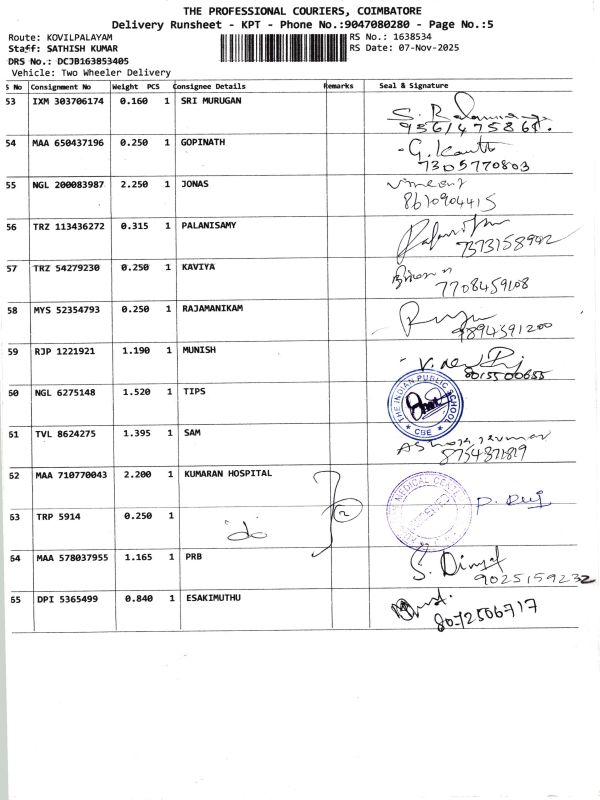 THE PROFESSIONAL COURIERS, COIMBATORE
Delivery Runsheet - KPT - Phone No.:9047080280 - Page No.:5
Route: KOVILPALAYAM RS No.: 1638534
Staff: SATHISH KUMAR RS Date: 07-Nov-2025
DRS No.: DCJB163853405
Vehicle: Two Wheeler Delivery
S No Consignment No Weight PCS Consignee Details Remarks Seal & Signature
53 IXM 303706174 0.160 1 SRI MURUGAN
54 MAA 650437196 0.250 1 GOPINATH G. Kantt
7305770803
55 NGL 200083987 2.250 1 JONAS Vincent
8610904415
56 TRZ 113436272 0.315 1 PALANISAMY
7373158942
57 TRZ 54279230 0.250 1 KAVIYA
7708459108
58 MYS 52354793 0.250 1 RAJAMANIKAM
9894391200
59 RJP 1221921 1.190 1 MUNISH
8015500655
60 NGL 6275148 1.520 1 TIPS THE INDIAN PUBLIC SCHOOL CBE
61 TVL 8624275 1.395 1 SAM
8754871819
62 MAA 710770043 2.200 1 KUMARAN HOSPITAL MEDICAL CENTRE
63 TRP 5914 0.250 1 do 2
64 MAA 578037955 1.165 1 PRB
9025159232
65 DPI 5365499 0.840 1 ESAKIMUTHU
8072506717